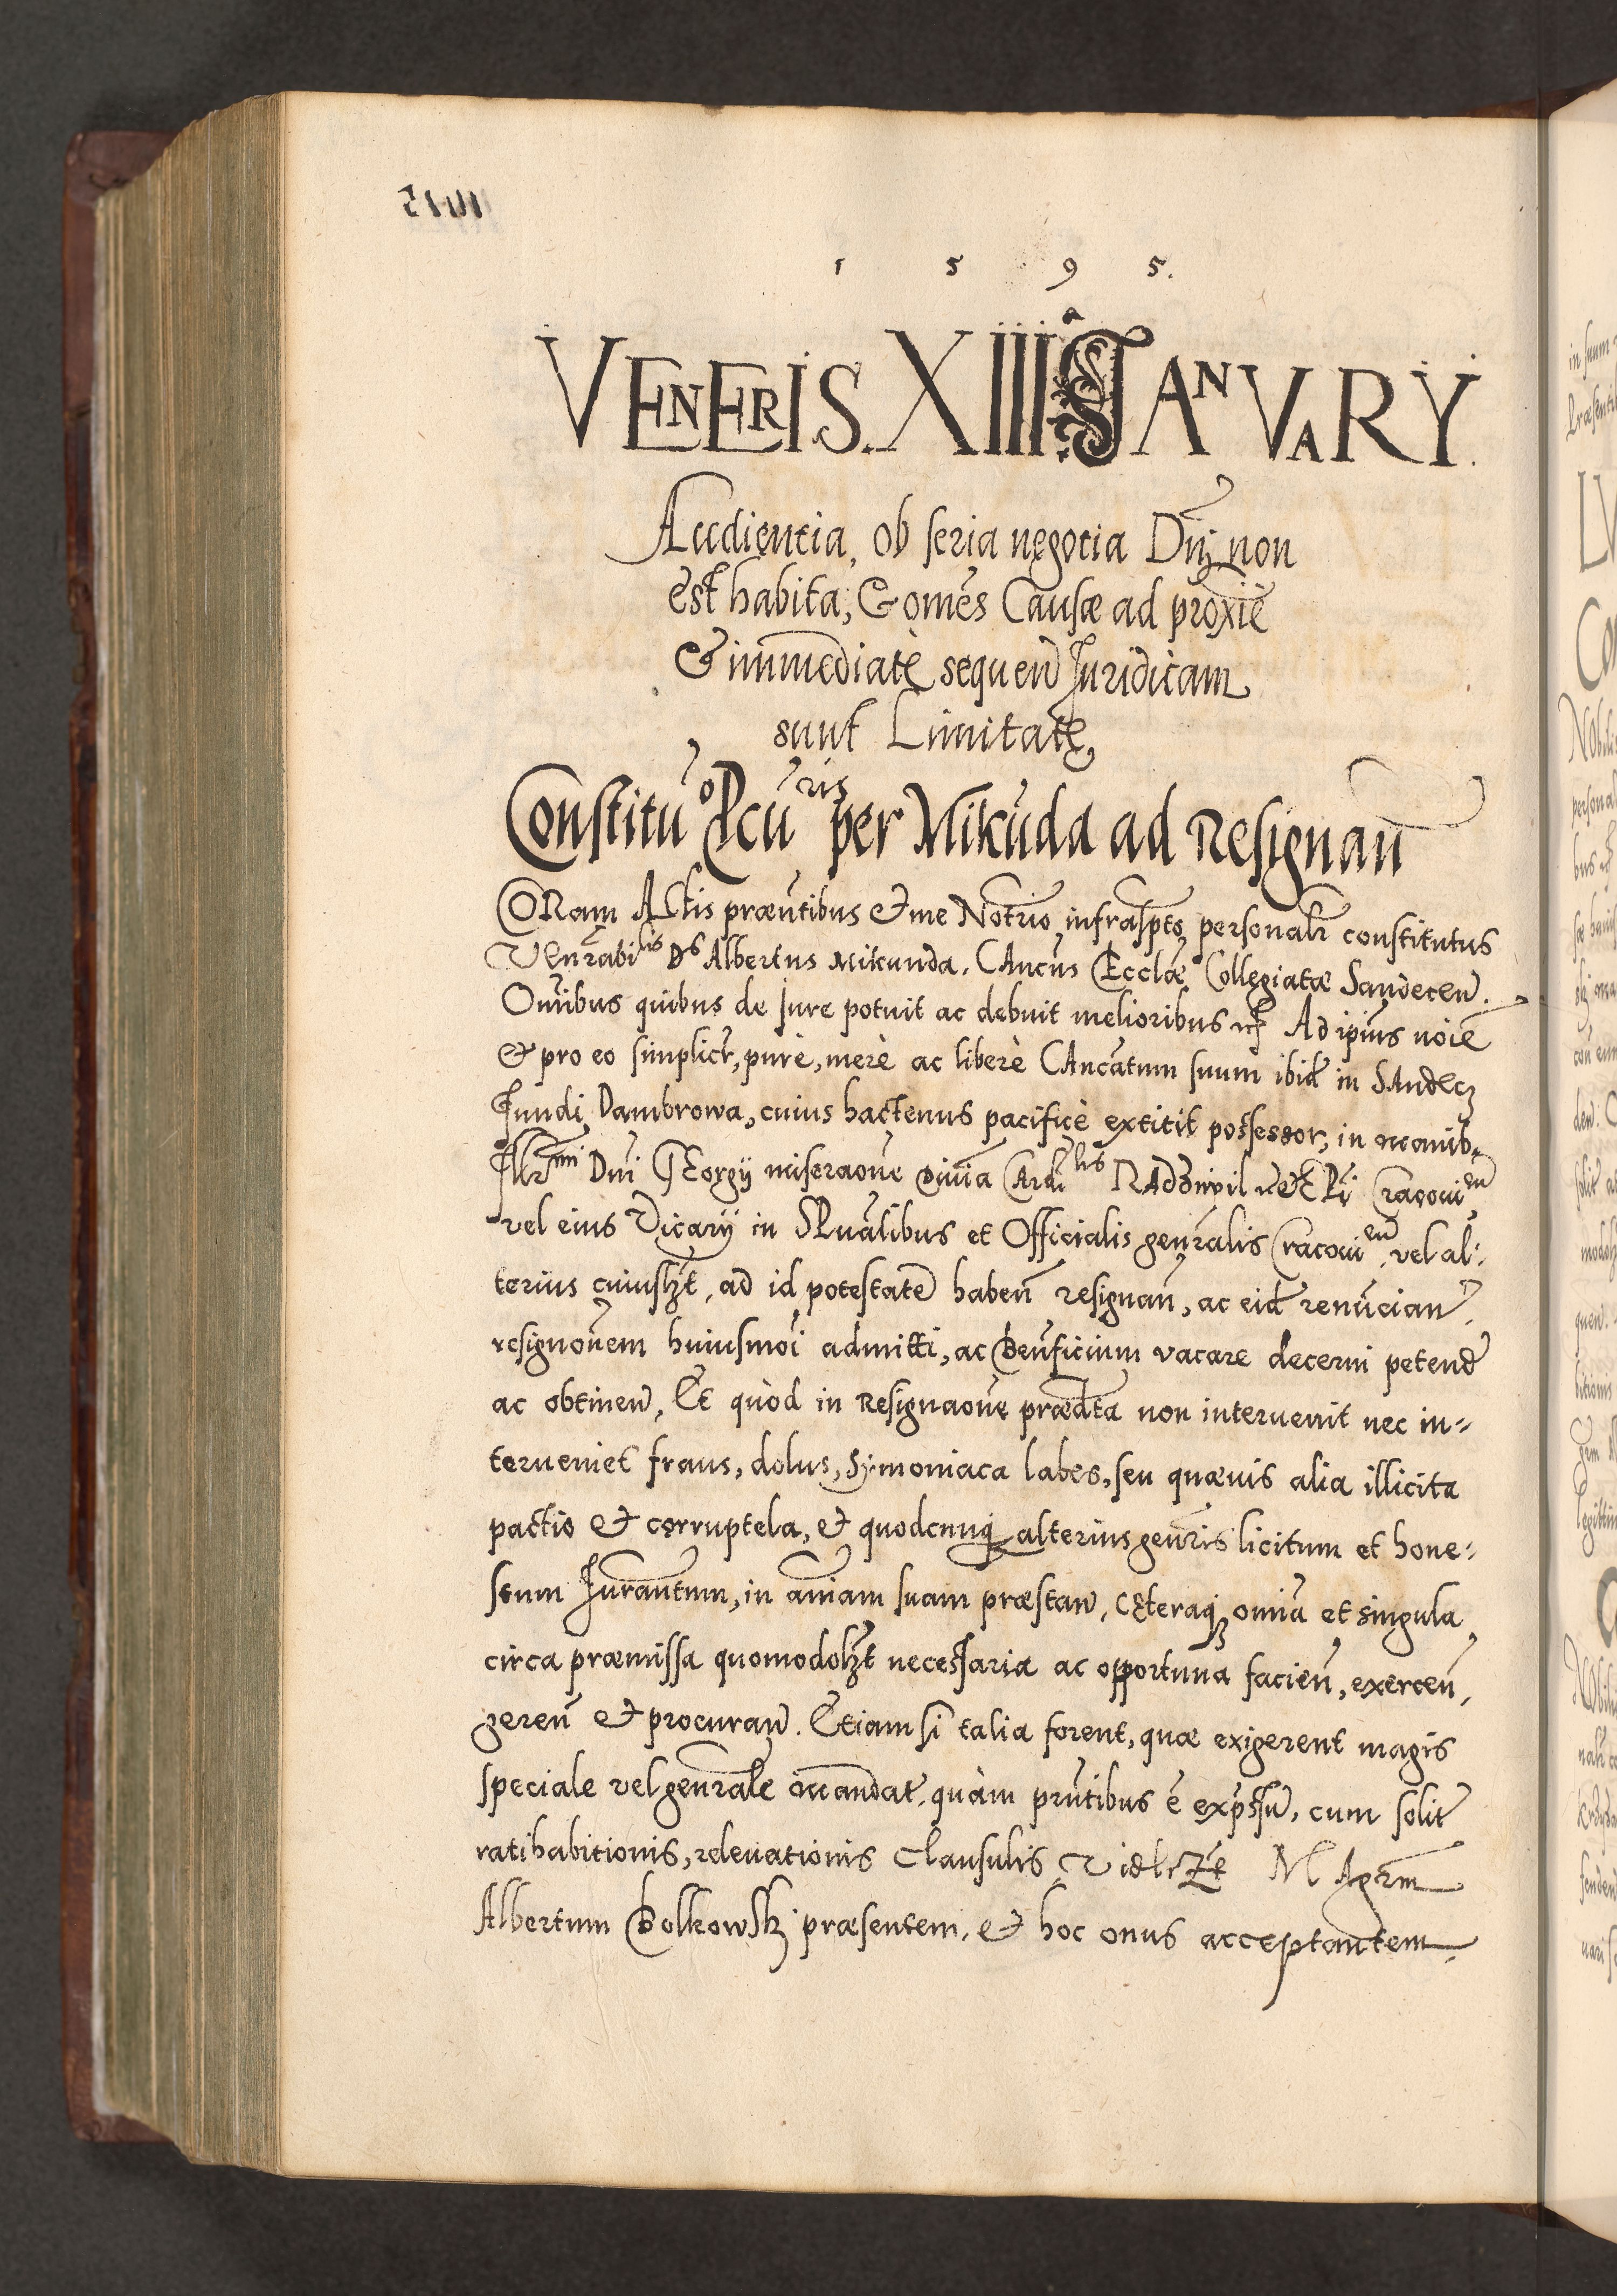 1595.
VENERIS. XIIIIa JANVARY.
Audientia, ob seria negotia Dnj non
est habita, & omēs Causæ ad proxīe
& immediatè sequeñ Juridicam
sunt Limitatę,
Constituo Pcuris per Mikuda ad Resignañ
CORam Actis præntibus & me Notrio infraspto, personalr constitutus
Venrabilis Ds Albertus Mikunda. CAncus Ecclæ Collegiatæ Sandeceñ.
Omibus quibus de Jure potuit ac debuit melioribus Ad ipius noie
& pro eo simplicr, purè, merè ac liberè CAncatum suum ibid in SAndecz
Fundi Dambrowa, cuius hactenus pacificè extitit possessor, in manib
Illrmi Dni GEorgy miseraone diuia Cardlis RAdziwil Cracouien
vel eius Vicary in SPualibus et Officialis genralis Cracouien. vel al-
terius cuiuslzt, ad id potestatē habeñ resignañ, ac eid renuncian
resignonem huiusmoi admitti, ac Benficium vacare decerni petend
ac obtineñ. Et quòd in Resignaone prædta non interuenit nec in-
terueniet fraus, dolus, Symoniaca labes, seu quæuis alia illicita
pactio & corruptela, & quodcunq alterius genris licitum et hone-
stum Juramtum, in aniam suam præstañ, Cęteraq omia et singula
circa præmissa quomodolzt necessaria ac opportuna facieñ, exerceñ,
gereñ & procurañ. Etiam si talia forent, quæ exigerent magis
speciale vel genrale mandat. quàm prntibus ē expssū, cum solit
ratihabitionis, releuationis Clausulis Vidlczt MAgrm
Albertum Bolkowsky præsentem, & hoc onus acceptantem